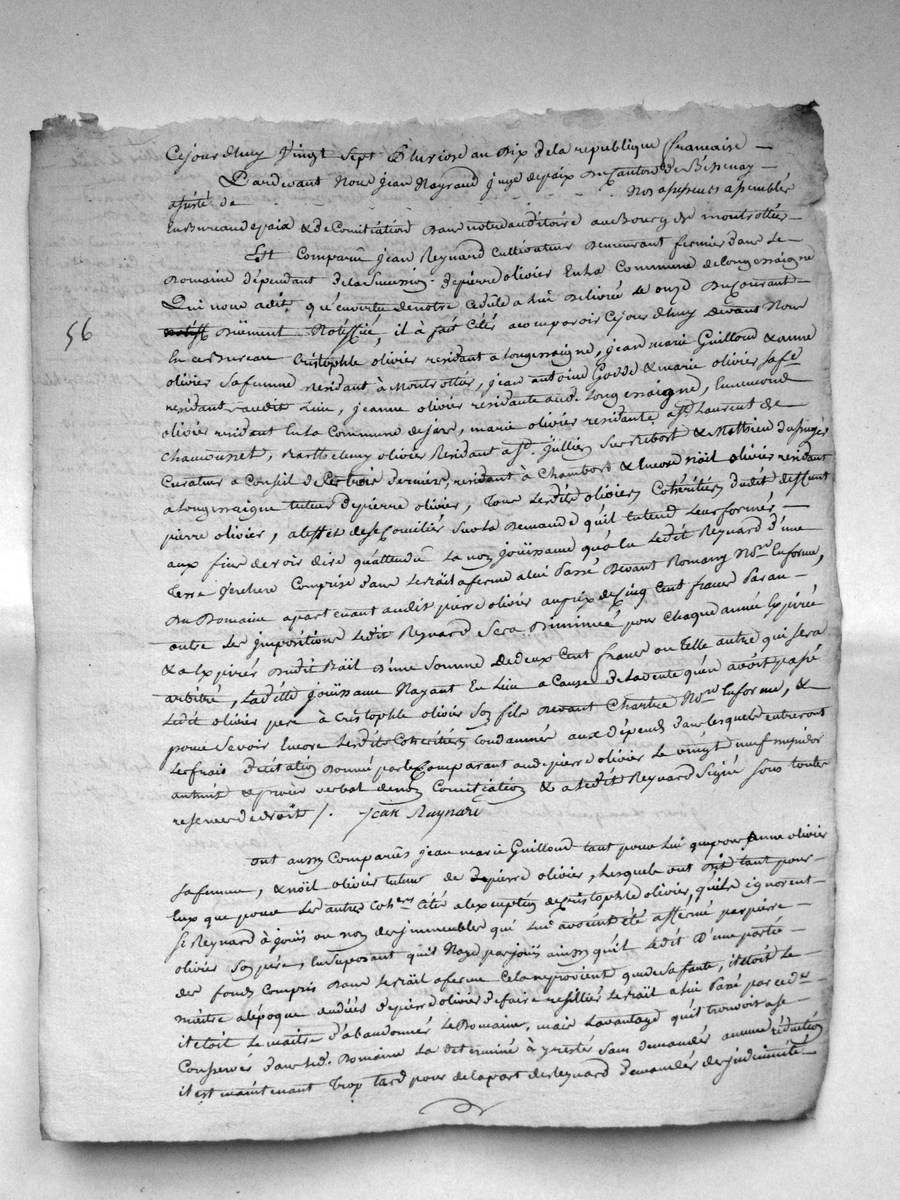 Cejourdhuy vingt Sept Pluviose an Dix de la republique francaise
Pardevant Nous jean Raynaud juge depaix Du Canton de Bessenay
assisté de nos assesseurs assemblés
En Bureau depaix & de Conciliation Dans notre auditoire au Bourg de montrottier
Est Comparûe jean Reynard Cultivateur Demeurant fermier dans Le
Domaine dépendant de la Succession depierre olivier En La Commune de Longessaigne
Qui nous adit, qu'envertu denotre Cedule a lui Delivrée le onze Du Courant
56
Düement Notiffiée, il à fait Citér a comparoir Cejourdhuy devant Nous
En ce Bureau Cristophle olivier residant a Longessaigne, jean marie Guilloud & anne
olivier Safemme residant à Montrottier, jean antoine & marie olivier Safe
residant audit Lieu, jeanne olivier residante aud. Longessaigne,
olivier residant En La Commune de , marie olivier residante a St Laurent de
Chamousset, Barthelemy olivier Residant a St. jullien Sur Bibost & Mathieu
Curateur a Conseil de Ces trois derniers, residant à Chambost & Encore noël olivier residant
a Longessaigne tuteur depierre olivier, Tous Lesdits oliviers Cohéritiers dudit deffunt
pierre olivier, a leffet de se Concilier Sur La Demande qu'il Entend Leur formér
aux fins de voir dire qu'attendû La non joüissance qu'a Eu Ledit Reynard d'une
Terre Verchere Comprise dans Le Bail aferme a lui Passé Devant Romany Nore. En forme,
Du Domaine apartenant audit pierre olivier au prix de Cinq Cent francs Par an
outre Les jmpositions Ledit Reynard Sera Diminuée pour Chaque année Expirée
& a Expirér Dudit Bail D'une Somme de deux Cent francs ou Telle autre qui Sera
arbitrée, Laditte joüissance Nayant En Lieu a Cause de La vente qu'en avoit passé
Ledit olivier pere à Cristophle olivier Son fils Devant Chartre Nore. En forme, &
pour Se voir Encore Lesdits Coheritiers Condamnés aux dépends dans lesquels entreront
Les frais De citation Donné par le Comparant aud. pierre olivier Le vingt neuf messidor
an huit & procès verbal denon Conciliation & a Ledit Reynard Signé Sous toutes
reserves de droits /. jean Raynard
ont aussy Comparûs jean marie Guilloud tant pour Lui que pour Anne olivier
Safemme, & noël olivier tuteur de depierre olivier, Lesquels ont Dit tant pour
Eux que pour Les autres Cohers Cités a l'exception de Cristophle olivier, qu'ils ignorent
Si Reynard à joüis ou non des jmmeubles qui Lui avoient été affermé par pierre
olivier Son père, En Suposant qu'il N'aye pas joüis ainsy qu'il Le dit D'une partie
des fonds Compris Dans Le Bail aferme Cela neprovient que de Sa faute, il étoit Le
maitre a l'époque du décès depierre olivier de faire resilier Le Bail a Lui Passé par cedr.
il étoit Le maitre d'abandonner Le Domaine, mais Lavantage qu'il trouvoit a Se
Conserver Dans Led. Domaine La determiné à y resté Sans demander aucune réduction
il est maintenant Trop tard pour de La part de Reynard demander des jndemnités